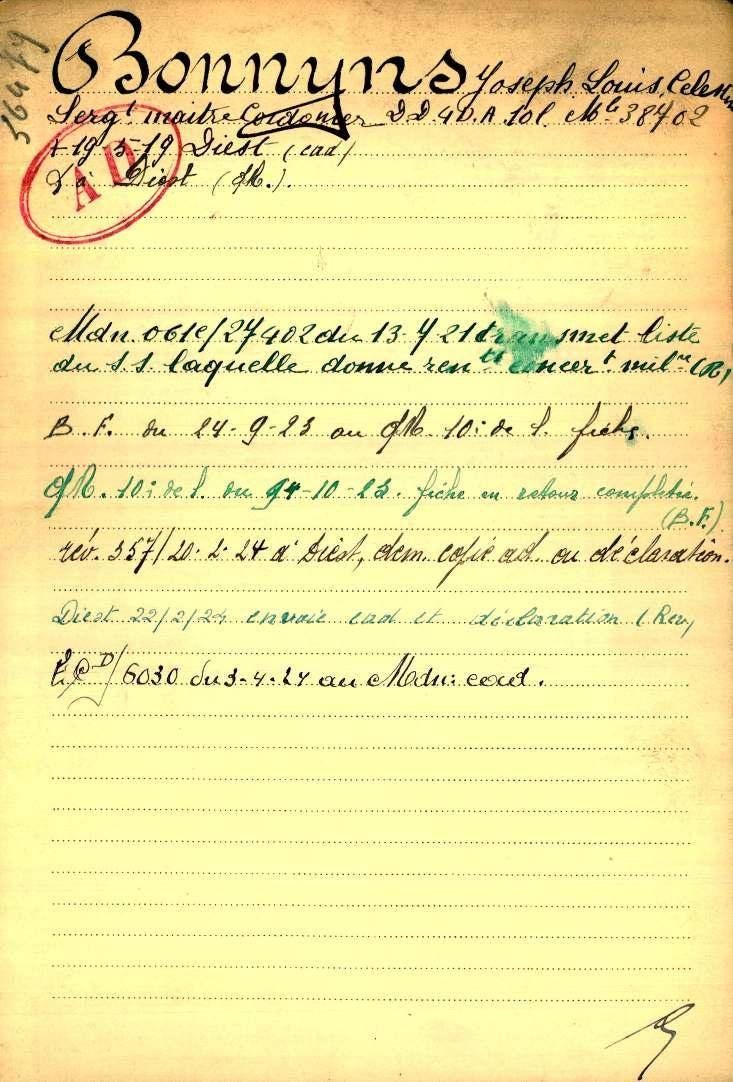 56489
Bonnyns Joseph Louis, Celestin
Sergt maitre Cordonnier D D 4 D.A. 10l. Mle 38402
+ 19-5-19 Diest (cad)
D à Diest (QR.).
AD
Mdn. 061e/27402 du 13-7-21 transmet liste
du S.S. laquelle donne rents concert milre (R)
B. F. du 24-9-23 au QR. 10: de l. fiche.
QR. 10: de l. du 94-10-23. fiche en retour complétée.
(B.F.)
rév. 357/20-2-24 à Diest, dem. copie ad ou déclaration.
Diest 22/2/24 envoie cad et déclaration (Rev)
/6030 du 3-4-24 au Mdn: cad.